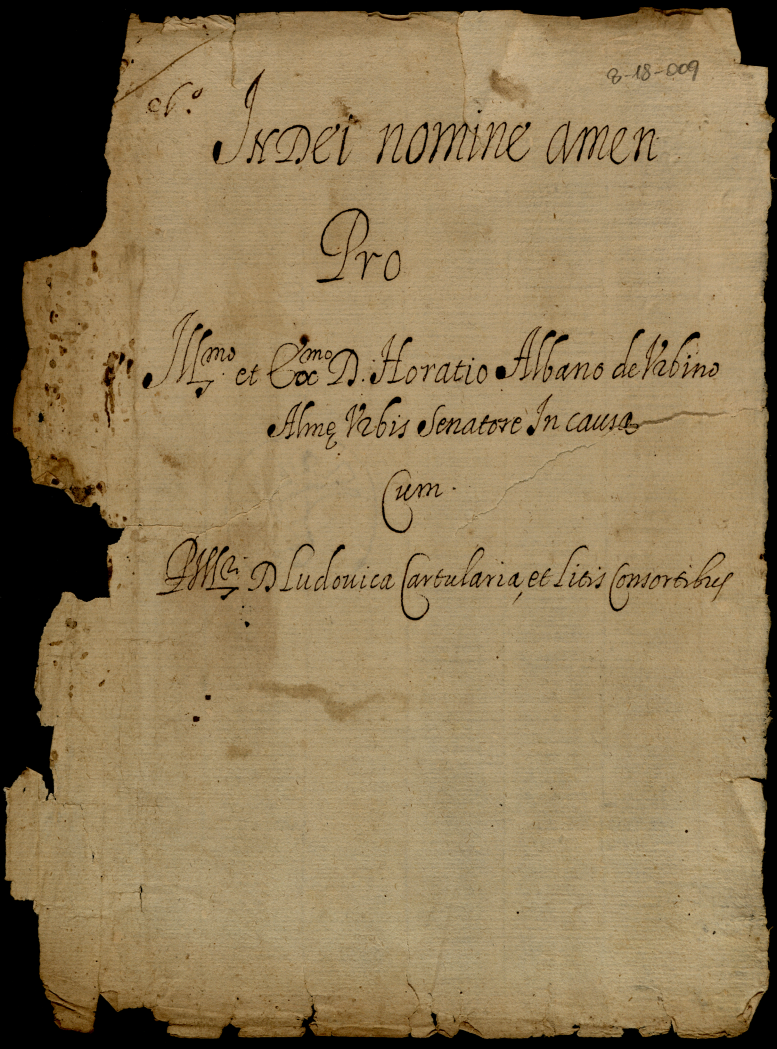 8-18-009
In Dei nomine amen
Pro
Ill.mo et Ex.mo D. Horatio Albano de Vrbino
Almę Vrbis Senatore In causa
Cum.
D Ludouica Cartularia, et Litis Consortibus